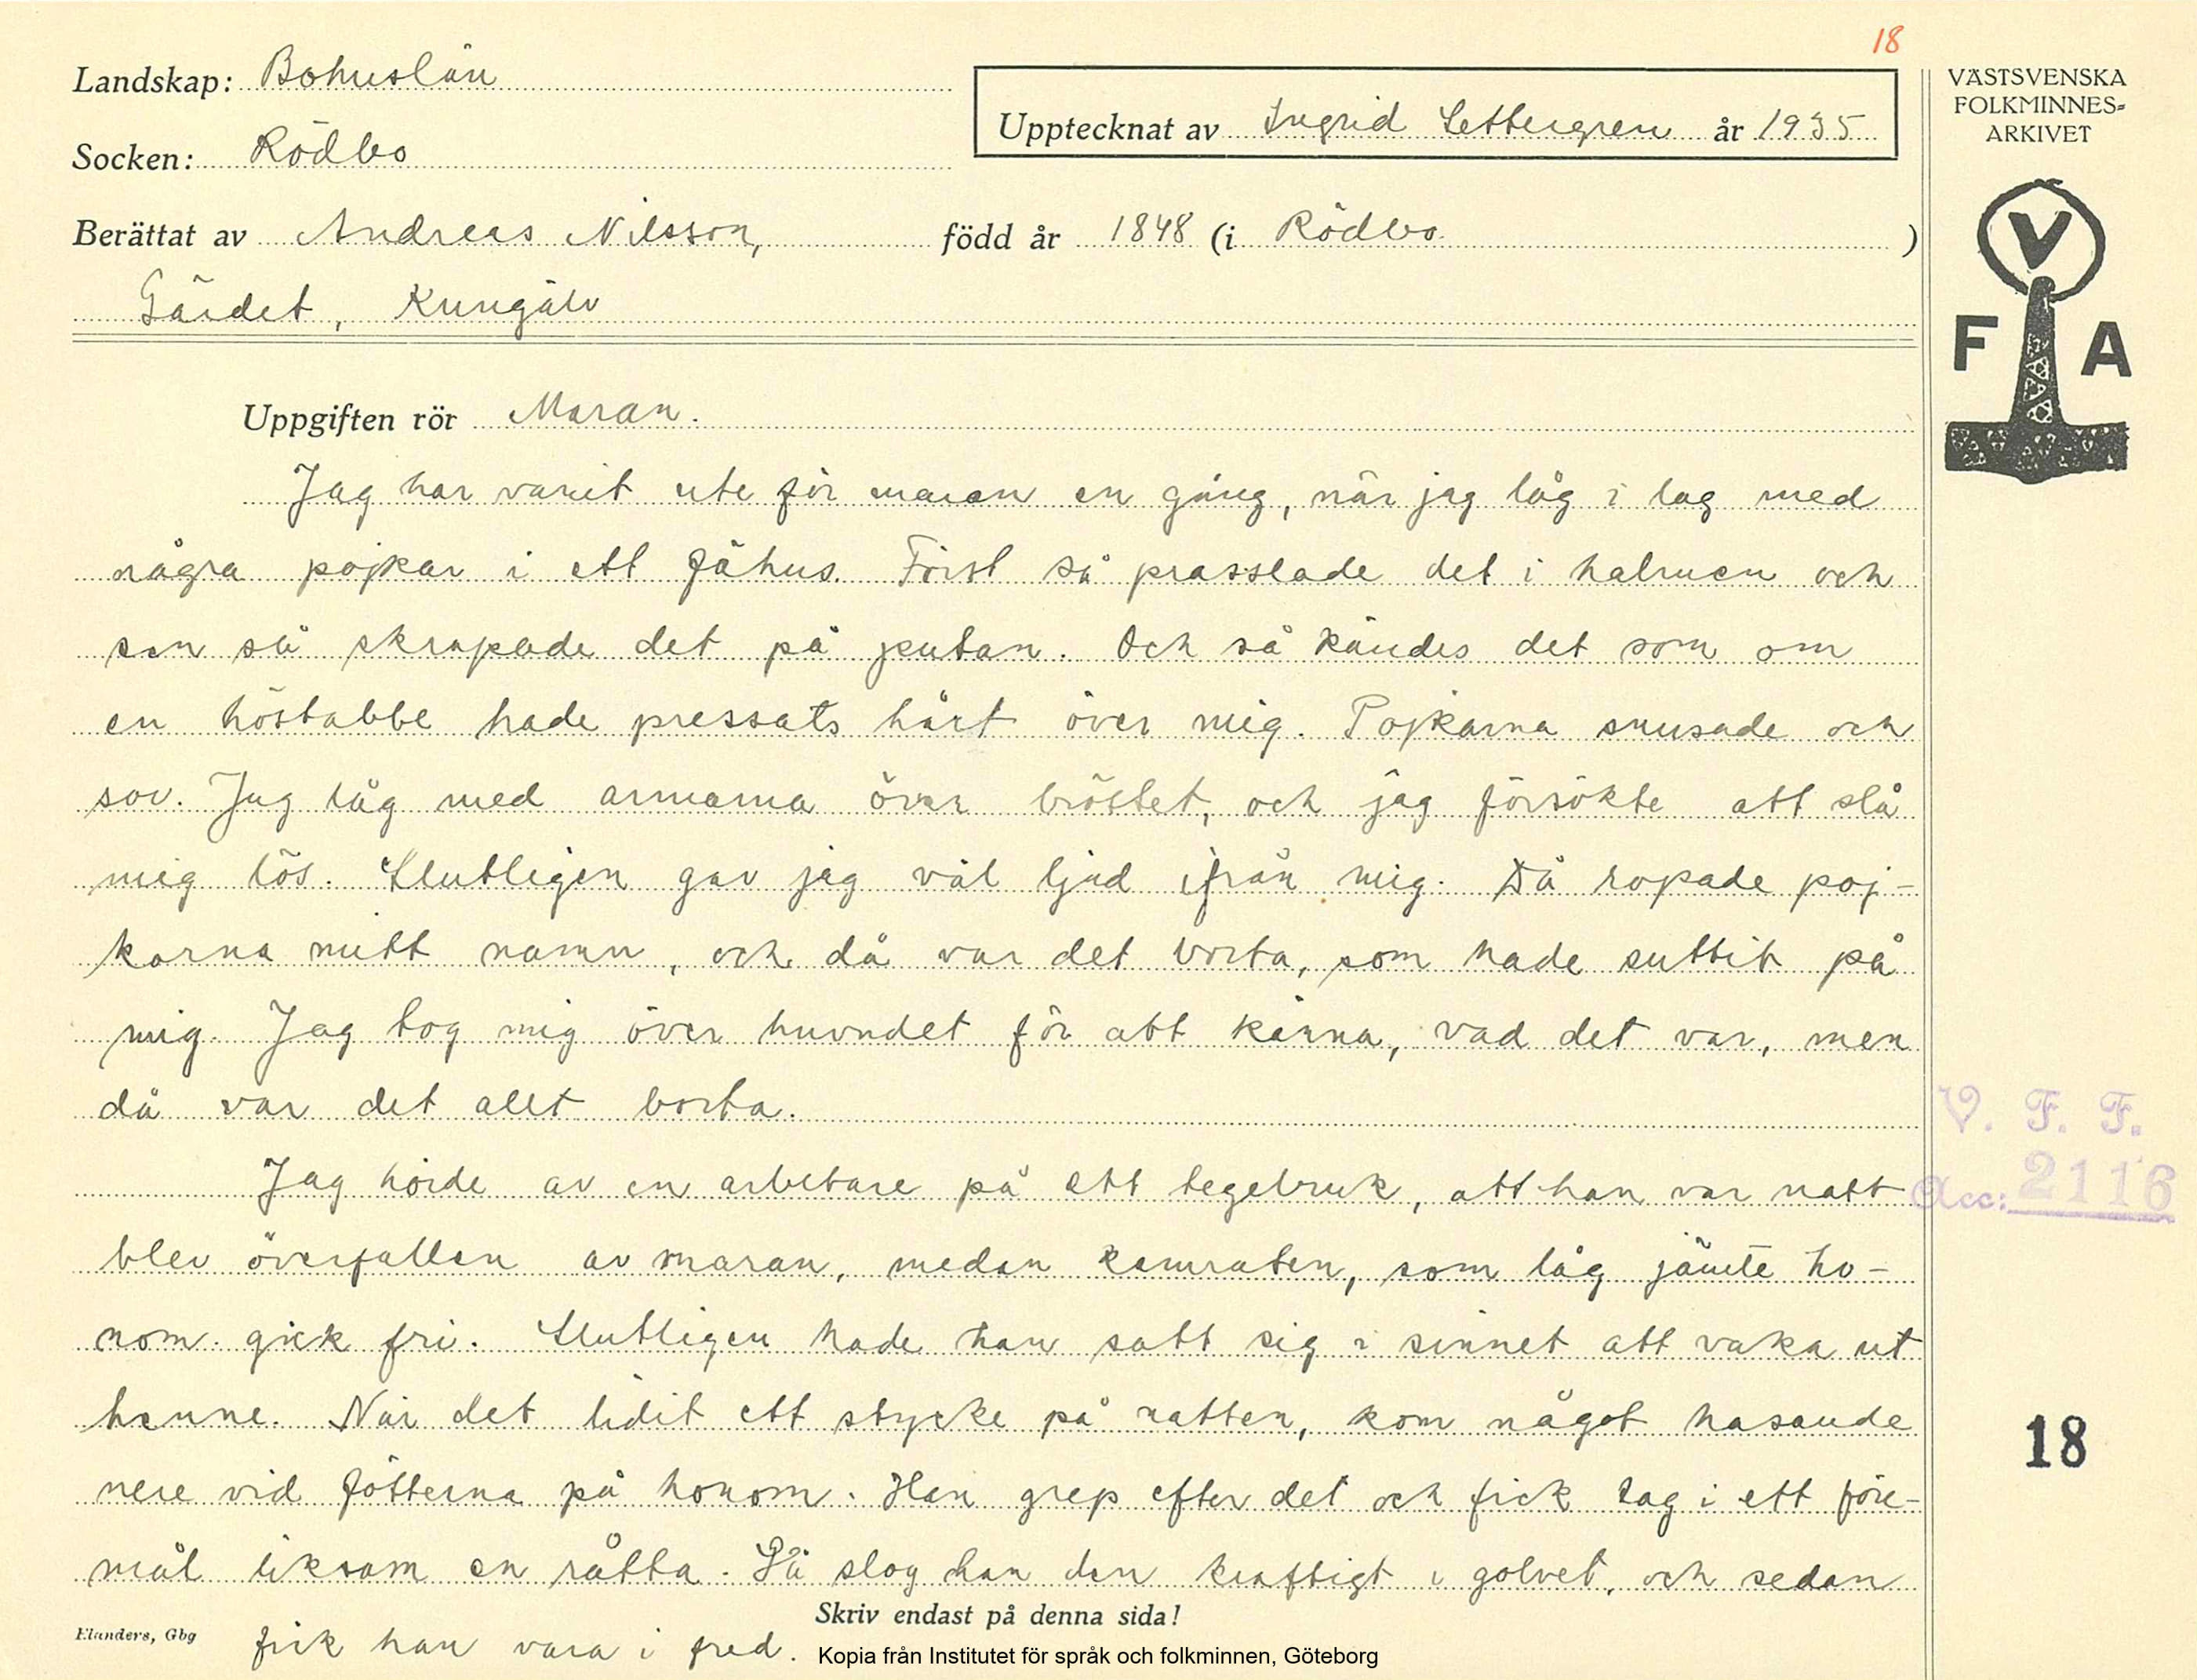 18
Landskap: Bohuslän
Socken: Rödbo
Upptecknat av Ingrid Settergren år 1935
Berättat av Andreas Nilsson, född år 1848 (i Rödbo )
Gärdet, Kungälv
VÄSTSVENSKA
FOLKMINNES-
ARKIVET
V
F A
Uppgiften rör Maran.
Jag har varit ute för maran en gång, när jag låg i lag med
några pojkar i ett fähus. Först så prasslade det i halmen och
sen så skrapade det på putan. Och så kändes det som om
en höstabbe hade pressats hårt över mig. Pojkarna snusade och
sov. Jag låg med armarna över bröstet, och jag försökte att slå
mig lös. Slutligen gav jag väl ljud ifrån mig. Då ropade poj-
karna mitt namn, och då var det borta, som hade suttit på
mig. Jag tog mig över huvudet för att känna, vad det var, men
då var det allt borta.
Jag hörde av en arbetare på ett tegelbruk, att han var natt
blev överfallen av maran, medan kamraten, som låg jämte ho-
nom gick fri. Slutligen hade han satt sig i sinnet att vaka ut
henne. När det lidit ett stycke på natten, kom något hasande
nere vid fötterna på honom. Han grep efter det och fick tag i ett före-
mål liksom en råtta. Så slog han den kraftigt i golvet, och sedan
fick han vara i fred.
V. F. F.
Acc: 2116
18
Skriv endast på denna sida!
Elanders, Gbg
Kopia från Institutet för språk och folkminnen, Göteborg